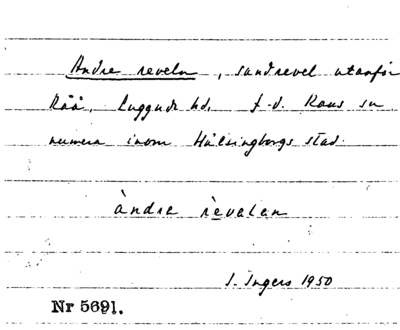 Andre reveln, sandrevel utanför
Råå, Luggude hd. f.d. Raus sn
numera inom Hälsingborgs stad.
àndre rèvelen
I. Ingers 1950
Nr 5691.